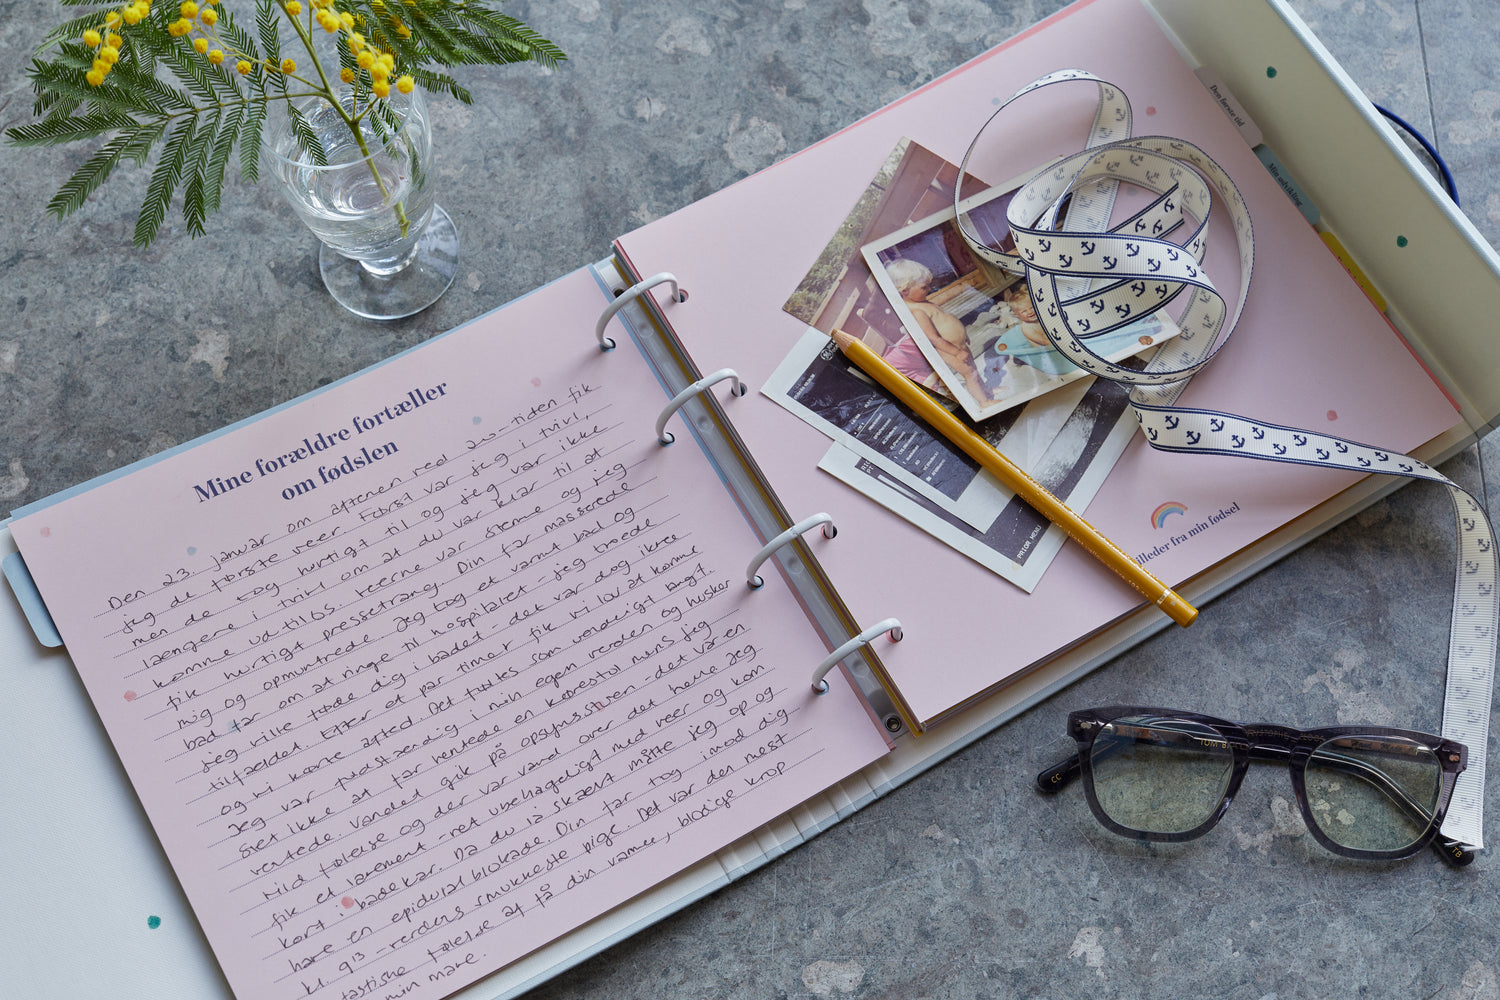 Mine forældre fortæller
om fødslen
Den 23. januar om aftenen ved 20-tiden fik
jeg de første veer. Først var jeg i tvivl,
men de tog hurtigt til og jeg var ikke
længere i tvivl om at du var klar til at
komme ud til os. Veerne var stemme og jeg
fik hurtigt pressetrang. Din far masserede
mig og opmuntrede. Jeg tog et varmt bad og
bad far om at ringe til hospitalet - jeg troede
jeg ville føde dig i badet - det var dog ikke
tilfældet. Efter et par timer fik vi lov at komme
og vi kørte afsted. Det føltes som vanvittigt langt.
Jeg var fuldstændig i min egen verden og husker
slet ikke at far hentede en kørestol mens jeg
ventede. Vandet gik på opsynsstuen - det var en
vild følelse og der var vand over det hele. Jeg
fik et lavement - ret ubehageligt med veer og kom
kort i badekar. Da du lå skævt måtte jeg op og
have en epidural blokade. Din far tog imod dig
kl. 913 - verdens smukkeste pige. Det var den mest
tastiske følelse at få din varme, blodige krop
min mave.
Billeder fra min fødsel
Den første tid
Min udvikling
PRIOR MEN
TOM
CC
TB